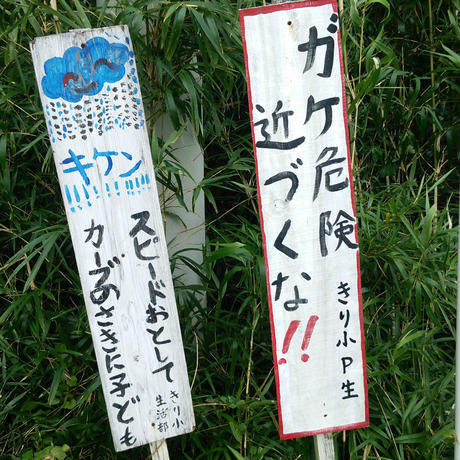 キケン
!!!!!!!!!
スピードおとして
カーブのさきに子ども
きり小
生活部
ガケ危険
近づくな!!
きり小P生